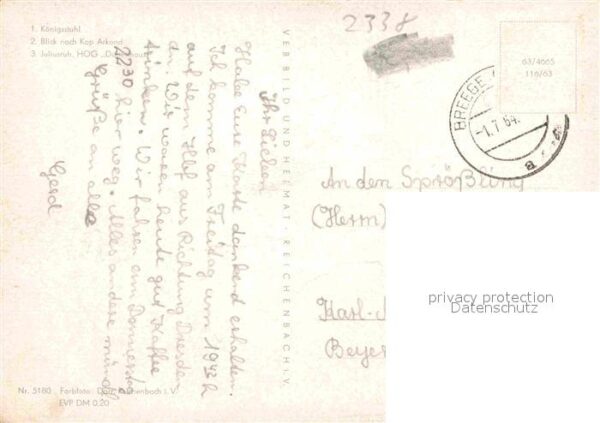 1. Königsstuhl
2. Blick nach Kap Arkona
3. Juliusruh, HOG
2338
63/4665
116/63
BREEGE
-1.7.64.
a
VEB BILD UND HEIMAT · REICHENBACH i.V.
Ihr Lieben
Habe Eure Karte dankend erhalten.
Ich komme am Freitag um 19
auf dem Hbf aus Richtung Dresden
an. Wir waren heute gut Kaffee
trinken. Wir fahren am Donnerstag
2230 hier weg. Alles andere
Grüße an alle
Gerd
An den Sprößling
(Herrn)
Karl-
Beyer
privacy protection
Datenschutz
Nr. 5180 Farbfoto: Reichenbach i. V.
EVP DM 0,20